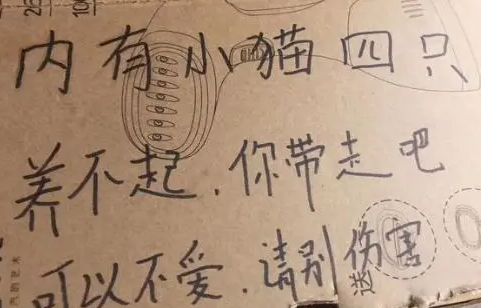 内有小猫四只
养不起，你带走吧
可以不爱，请别伤害
送